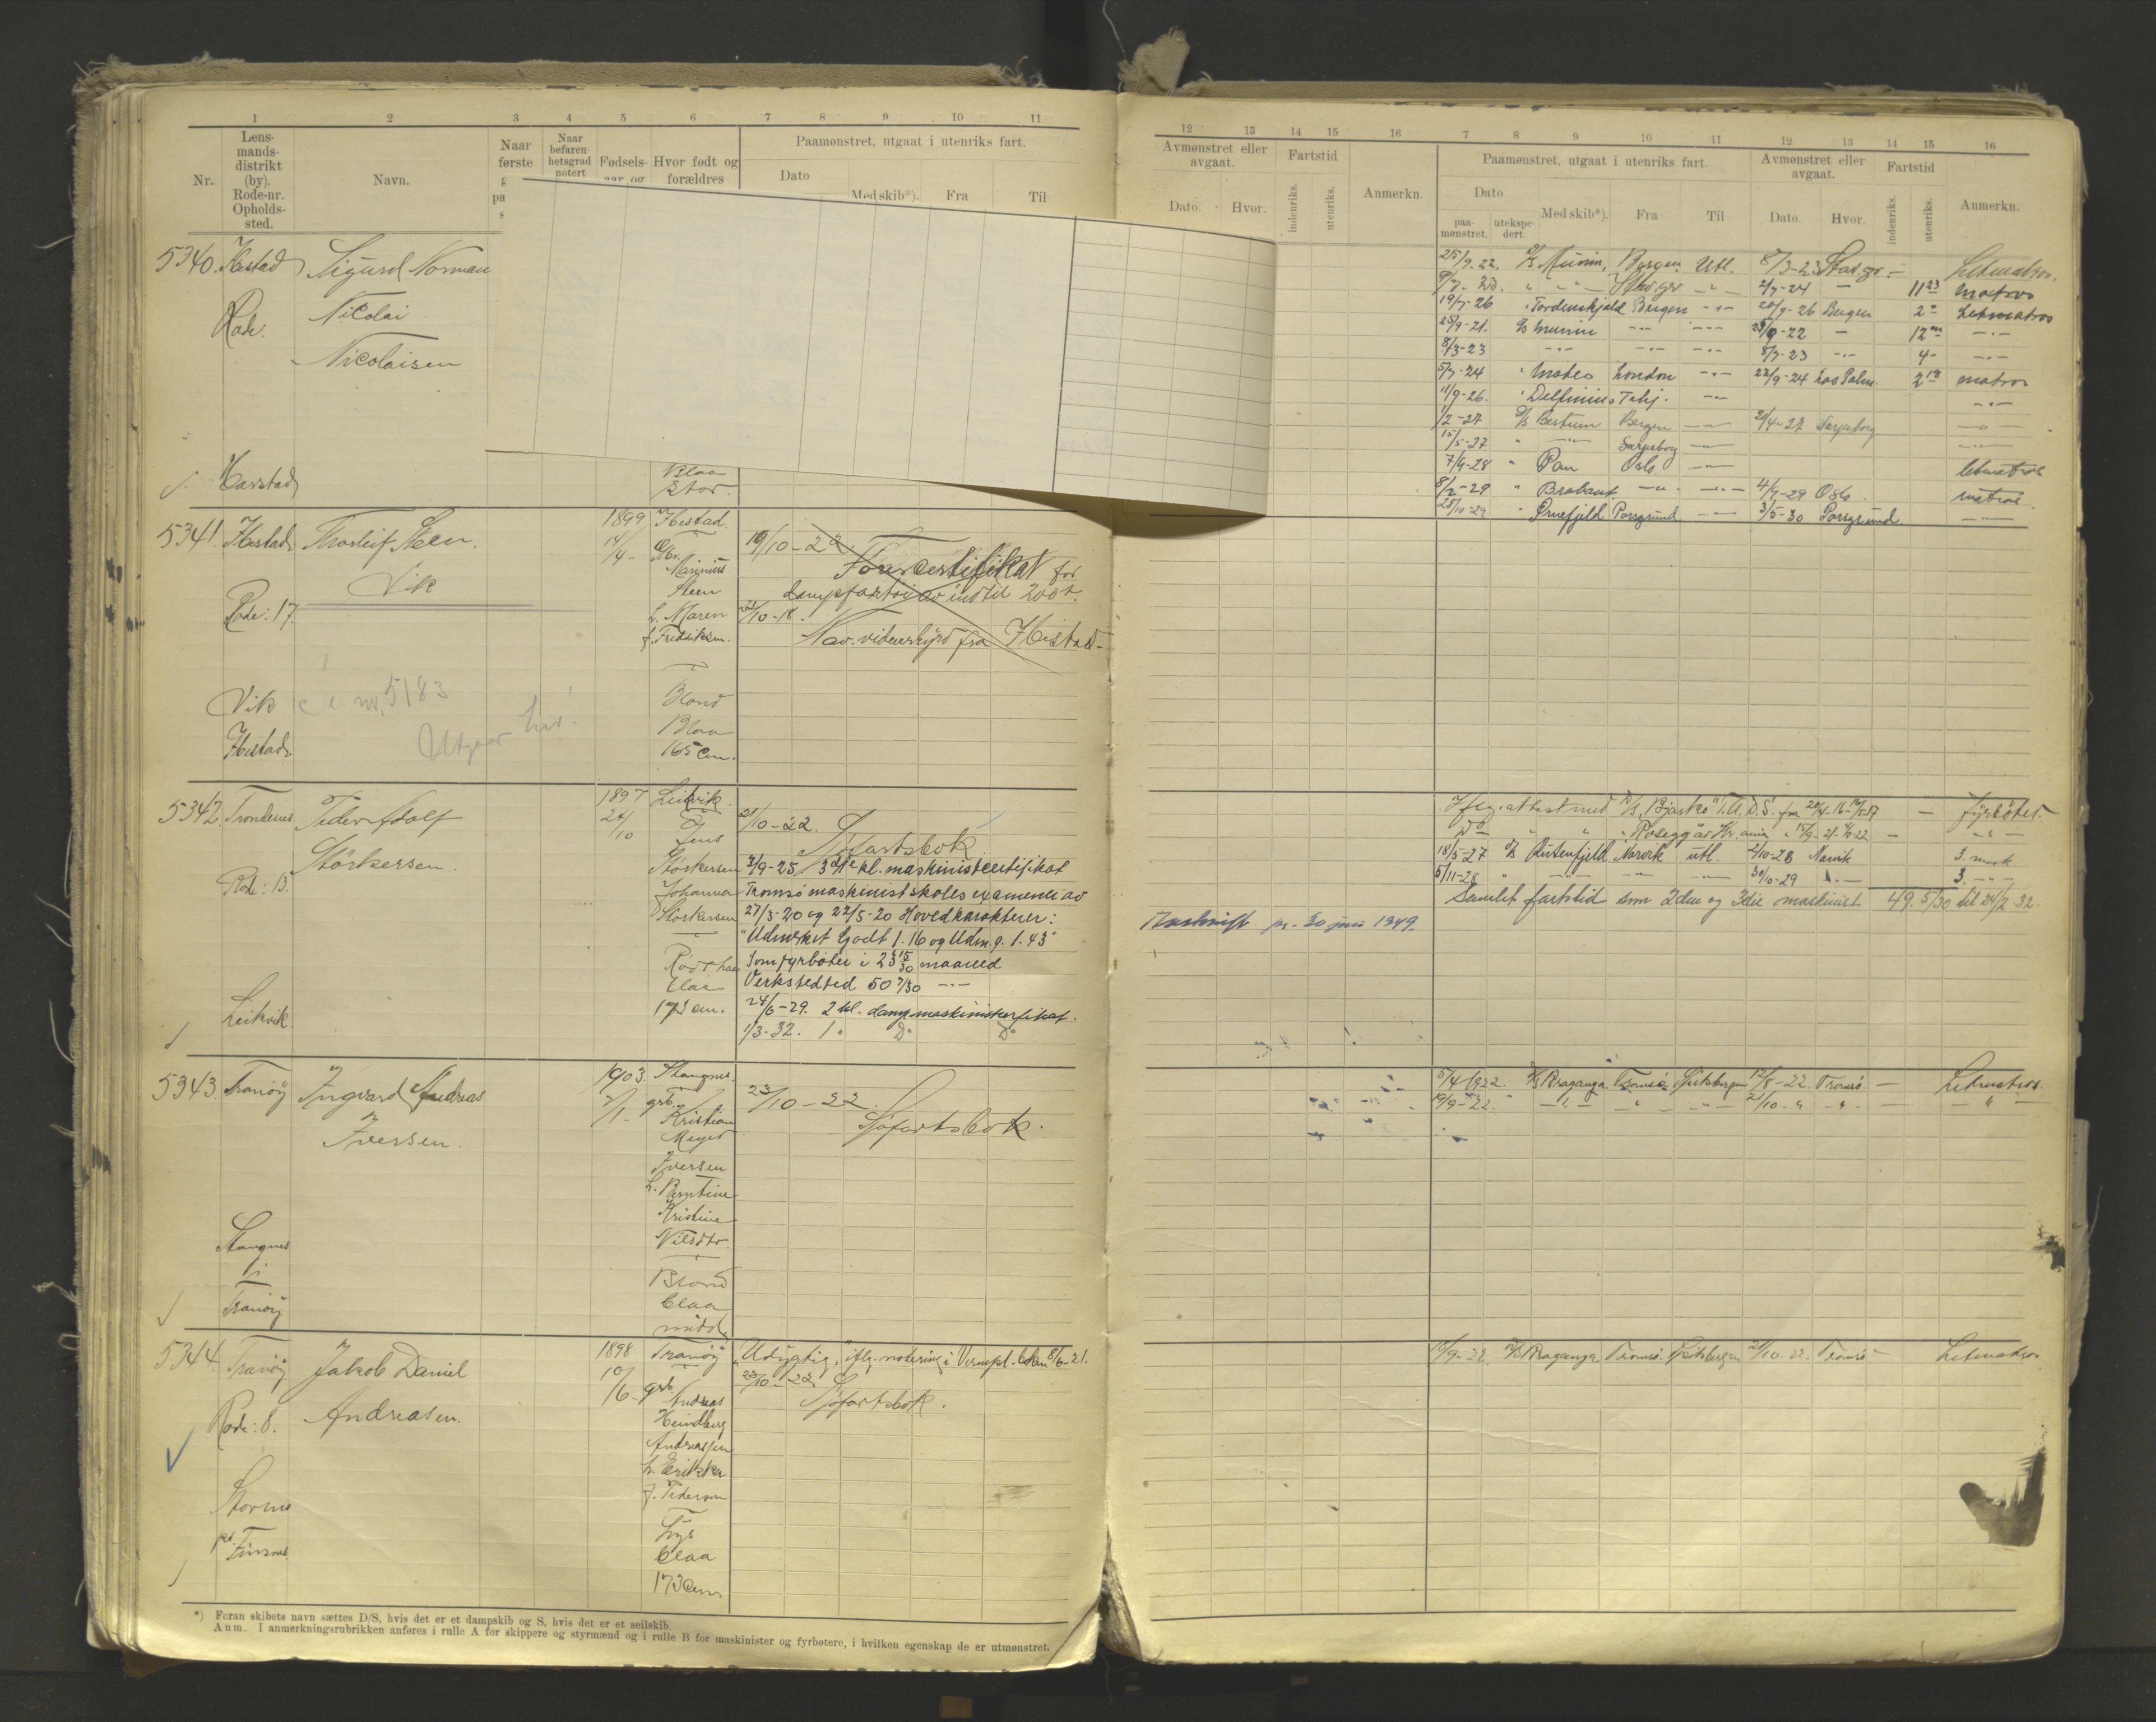 1 2 3 4 5 6 7 8 9 10 11
Nr.
Lens-
mands-
distrikt
(by).
Rode-nr.
Opholds-
sted.
Navn.
Naar
første
Naar
befaren-
hetsgrad
notert
Fødsels-
Hvor født og
forældres
Paamønstret, utgaat i utenriks fart.
Dato
Med skib*).
Fra
Til
5340.
Sigurd Norman
Rode.
Nicolai
Nicolaisen
Harstad
Blaa
Stor.
5341
Thorleif Steen.
Vik
Rode: 17
1899
14/4-
Marinius
Steen
h. Maren
f. Fredriksen.
Blond
Blaa
165 Cm.
19/10-22
Førercertifikat for
dampfartøi av indtil 200 t.
/10-18.
Nav. vidnesbyrd fra
Vik
Se nr. 5183
Utgaar her!
5342
Trondenes
Peder Adolf
Størkersen.
Rode: 13.
1897
24/10
Leikvik.
Jens
Størkersen
Johanna
Størkersen
Rødt haar
blaa
173 cm.
21/10-22.
Sjøfartsbok
3/9-25 3dje kl. maskinistcertifikat
Tromsø maskinistskoles examener av
27/3-20 og 22/5-20 Hovedkarakterer:
"Udmerket Godt 1.16 og Udm. g. 1.43"
Som fyrbøter i 23 15/30 maaned
Verkstedtid 50 7/30 -"-
24/6-29. 2 kl. dampmaskinistcertifikat.
1/3-32. 1" Do Do
Leikvik
5343.
Tranøy
Ingvard Andreas
Iversen.
1903.
2/1-
Stangnes.
grb.
Kristian
Meyer
Iversen
h. Berntine
Kristine
Nilsdtr.
Blond
blaa
midd.
23/10-22
Sjøfartsbok.
Stangnes
i
Tranøy
5344.
Tranøy
Jakob Daniel
Andreasen.
Rode: 8.
1898
10/6-
Tranøy
grb.
Andreas
Heindberg
Andreassen
h. Erikka
f. Pedersen
Lys
blaa
173 Cm.
"Udygtig," iflg. notering i Vernepl. boken 8/6-21.
23/10-22
Sjøfartsbok.
pr.
Finsnes
*) Foran skibets navn sættes D/S, hvis det er et dampskib og S, hvis det er et seilskib.
Anm. I anmerkningsrubrikken anføres i rulle A for skippere og styrmænd og i rulle B for maskinister og fyrbøtere, i hvilken egenskap de er utmønstret.
12 13 14 15 16 7 8 9 10 11 12 13 14 15 16
Avmønstret eller
avgaat.
Fartstid
Dato.
Hvor.
indenriks.
utenriks.
Anmerkn.
Paamønstret, utgaat i utenriks fart.
Dato
paa-
mønstret.
utekspe-
dert.
Med skib*).
Fra
Til
Avmønstret eller
avgaat.
Dato.
Hvor.
Fartstid
indenriks.
utenriks.
Anmerkn.
25/9-22. D/S Munin, Bergen Utl. 8/3-23 Stav.gr - Letmatros.
2/7-24 - 11 23 Matros
19/7-26 " Tordenskjold Bergen -"- 20/9-26 Bergen 2" Letmatros
25/9-21. D/S Munin -"- -"- 25/9-22 - 12 m -"-
8/3-23 -"- -"- -"- 8/7-23 -"- 4- -"-
5/7-24 " London -"- 22/9-24 Las Palm. 2 18 matros
11/9-26. " -"- -"-
1/2-27 D/S Bestum Bergen -"- 20/4-27 Sarpsborg -"-
15/5-27 " -"- Sarpsborg -"- -"-
7/9-28 " Pan Oslo -"- letmatros
8/2-29 " Brabant -"- -"- 4/9-29 Oslo. matros
25/10-29 " Ornefjeld Porsgrund. -"- 3/5-30 Porsgrund. -"-
Iflg. attest med D/S "Bjarkø" T.A.D.S. fra - fyrbøter.
Do " " -"-
18/5-27 D/S Rutenfjeld Narvik utl. 2/10-28 Narvik 3. mask
5/11-28 " -"- -"- -"- 30/10-29 -"- 3. -"-
Samlet fartstid som 2den og 3die maskinist 49. 5/30 til 24/2 32.
pr. 30 juni 1949.
5/4-1922. D/S Braganza Tromsø Spitsbergen 12/8-22. Tromsø. - Letmatros.
19/9-22. " -"- -"- -"- 21/10-" -"- - -"-
19/9-22. D/S Braganza Tromsø. Spitsbergen 21/10-22. Tromsø - Letmatros